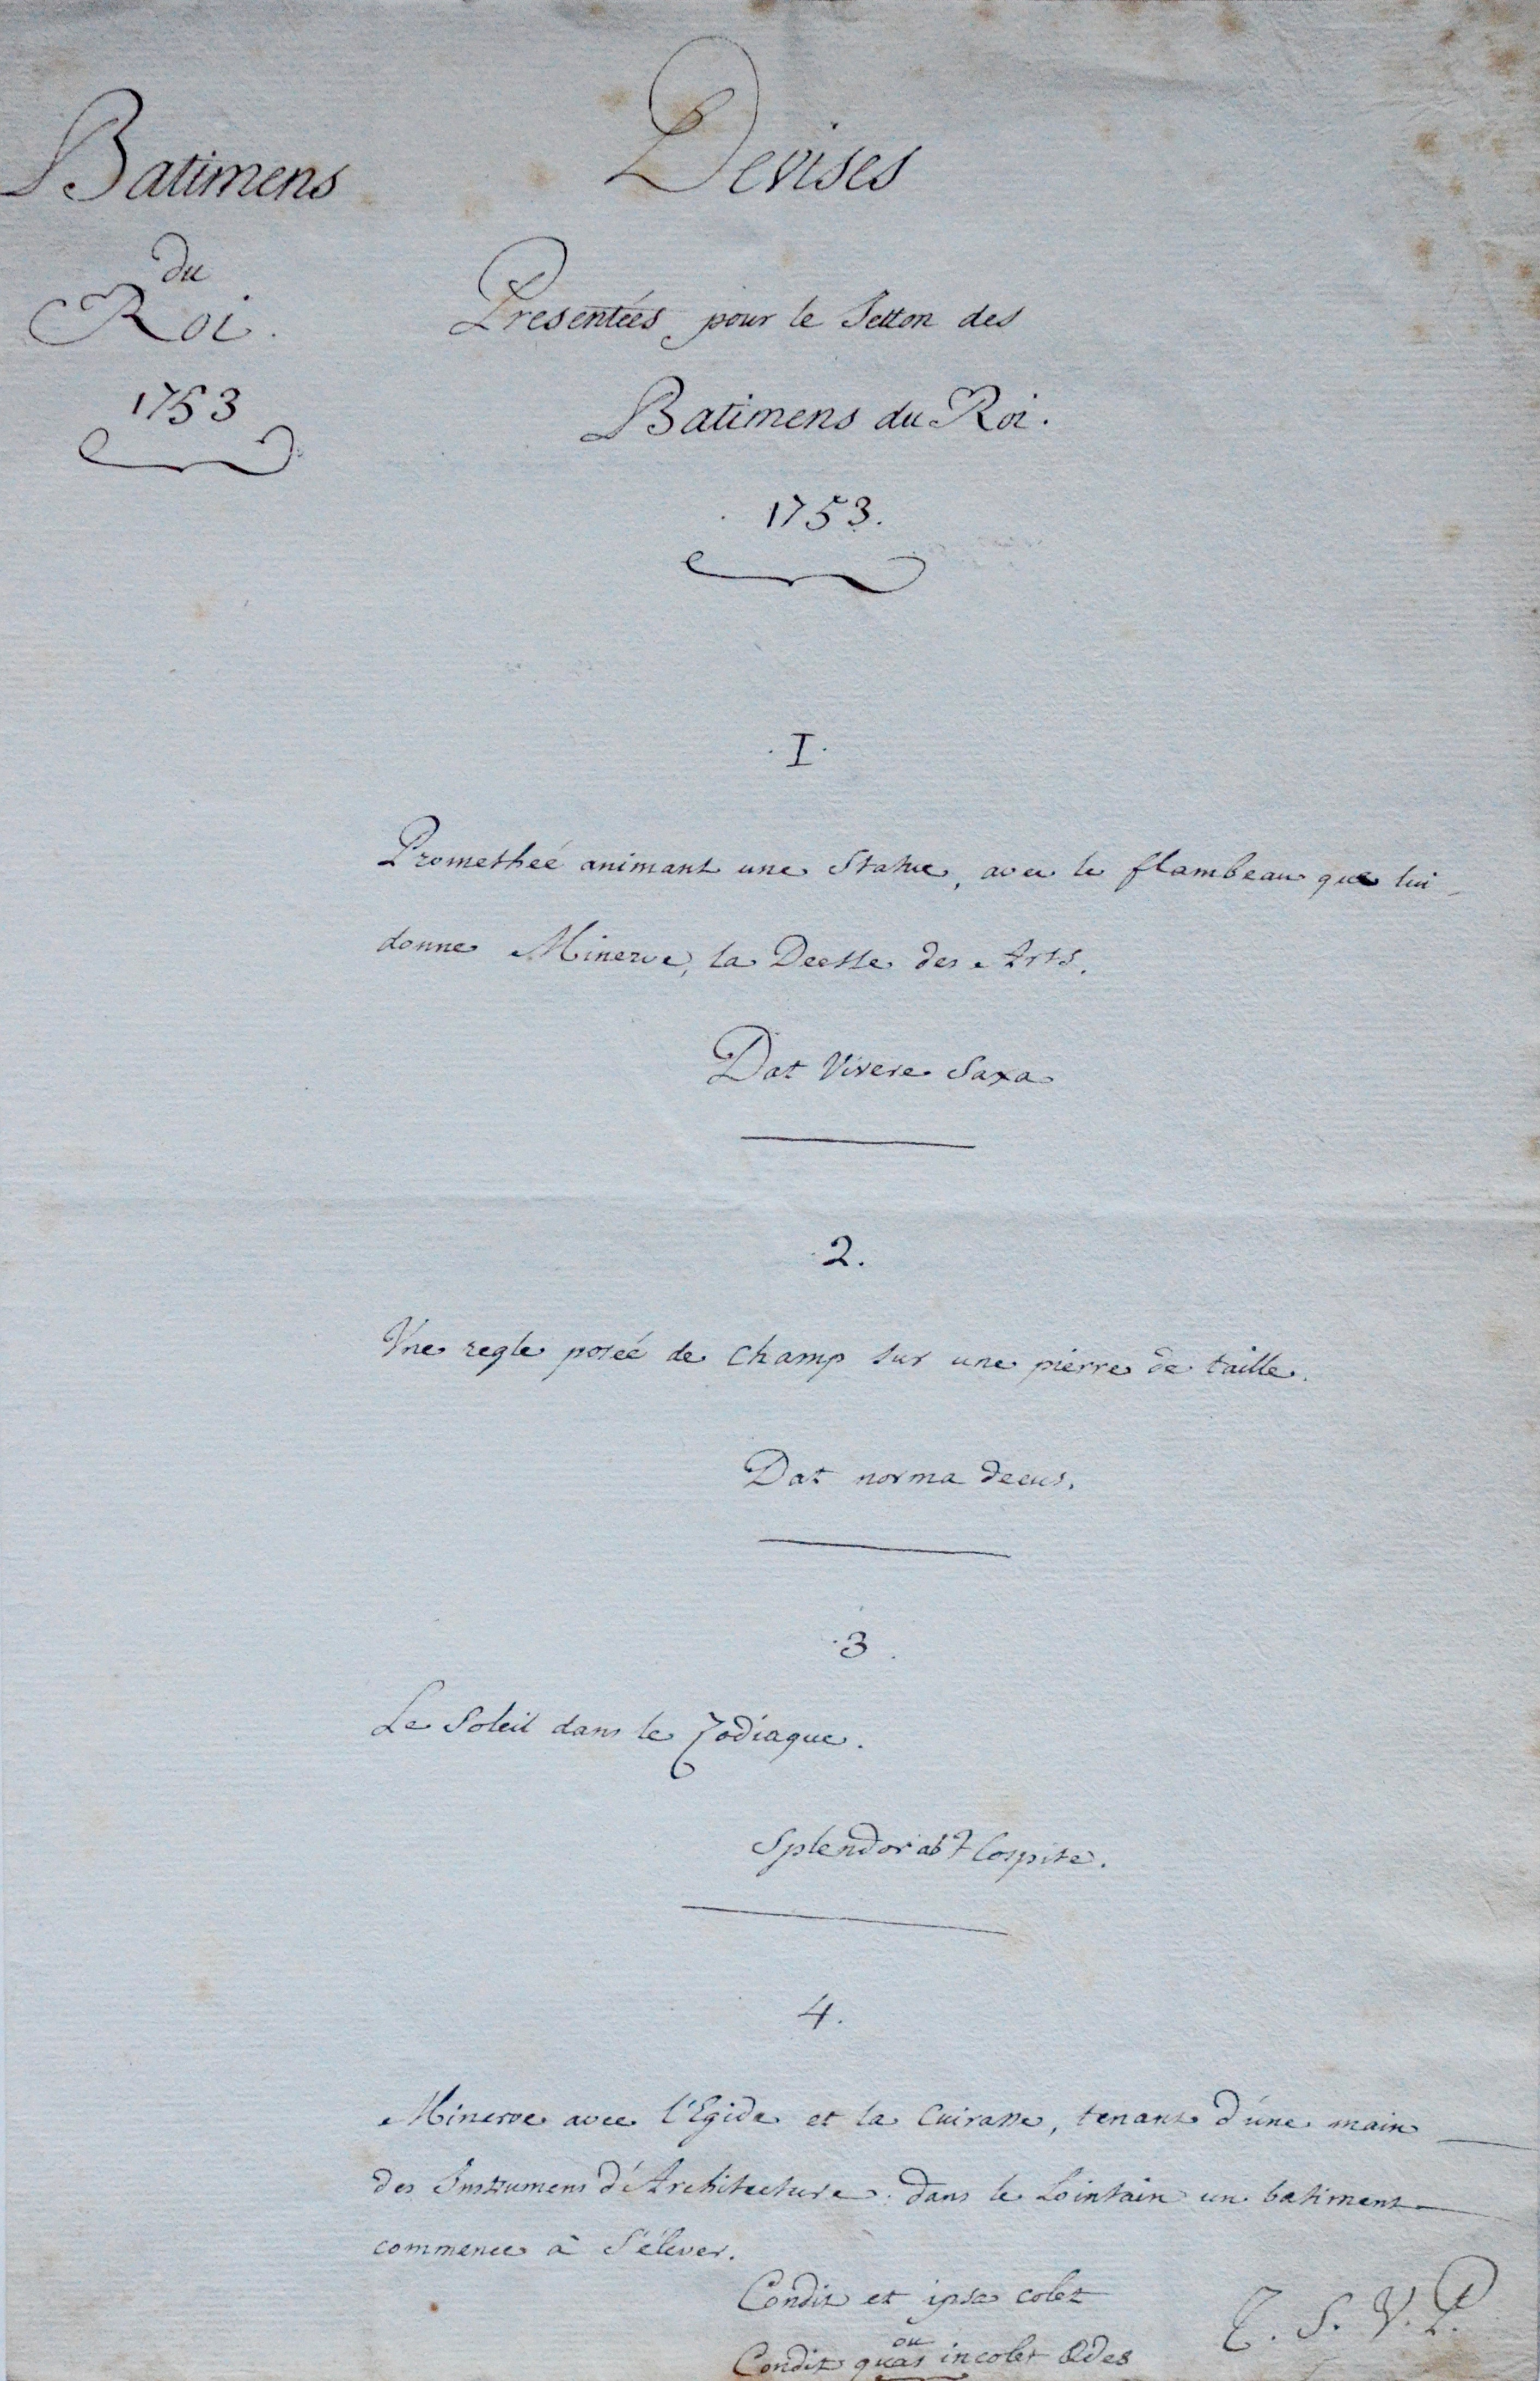 Batimens
du
Roi.
1753
Devises
Presentées pour le Jetton des
Batimens du Roi.
1753.
I.
Prometheé animant une Statue, avec le flambeau que lui
donne Minerve, la Deesse des Arts.
Dat Vivere Saxa
2.
Une regle poseé de champ sur une pierre de taille.
Dat norma decus.
3.
Le Soleil dans le Zodiaque.
Splendor ab Hospite.
4.
Minerve avec l'Egide et la Cuirasse, tenant d'une main
des Instrumens d'Architecture. dans le Lointain un batiment
commence à S'élever.
Condit et ipsa colet
ou
Condit quas incolet Ædes
T. S. V. P.